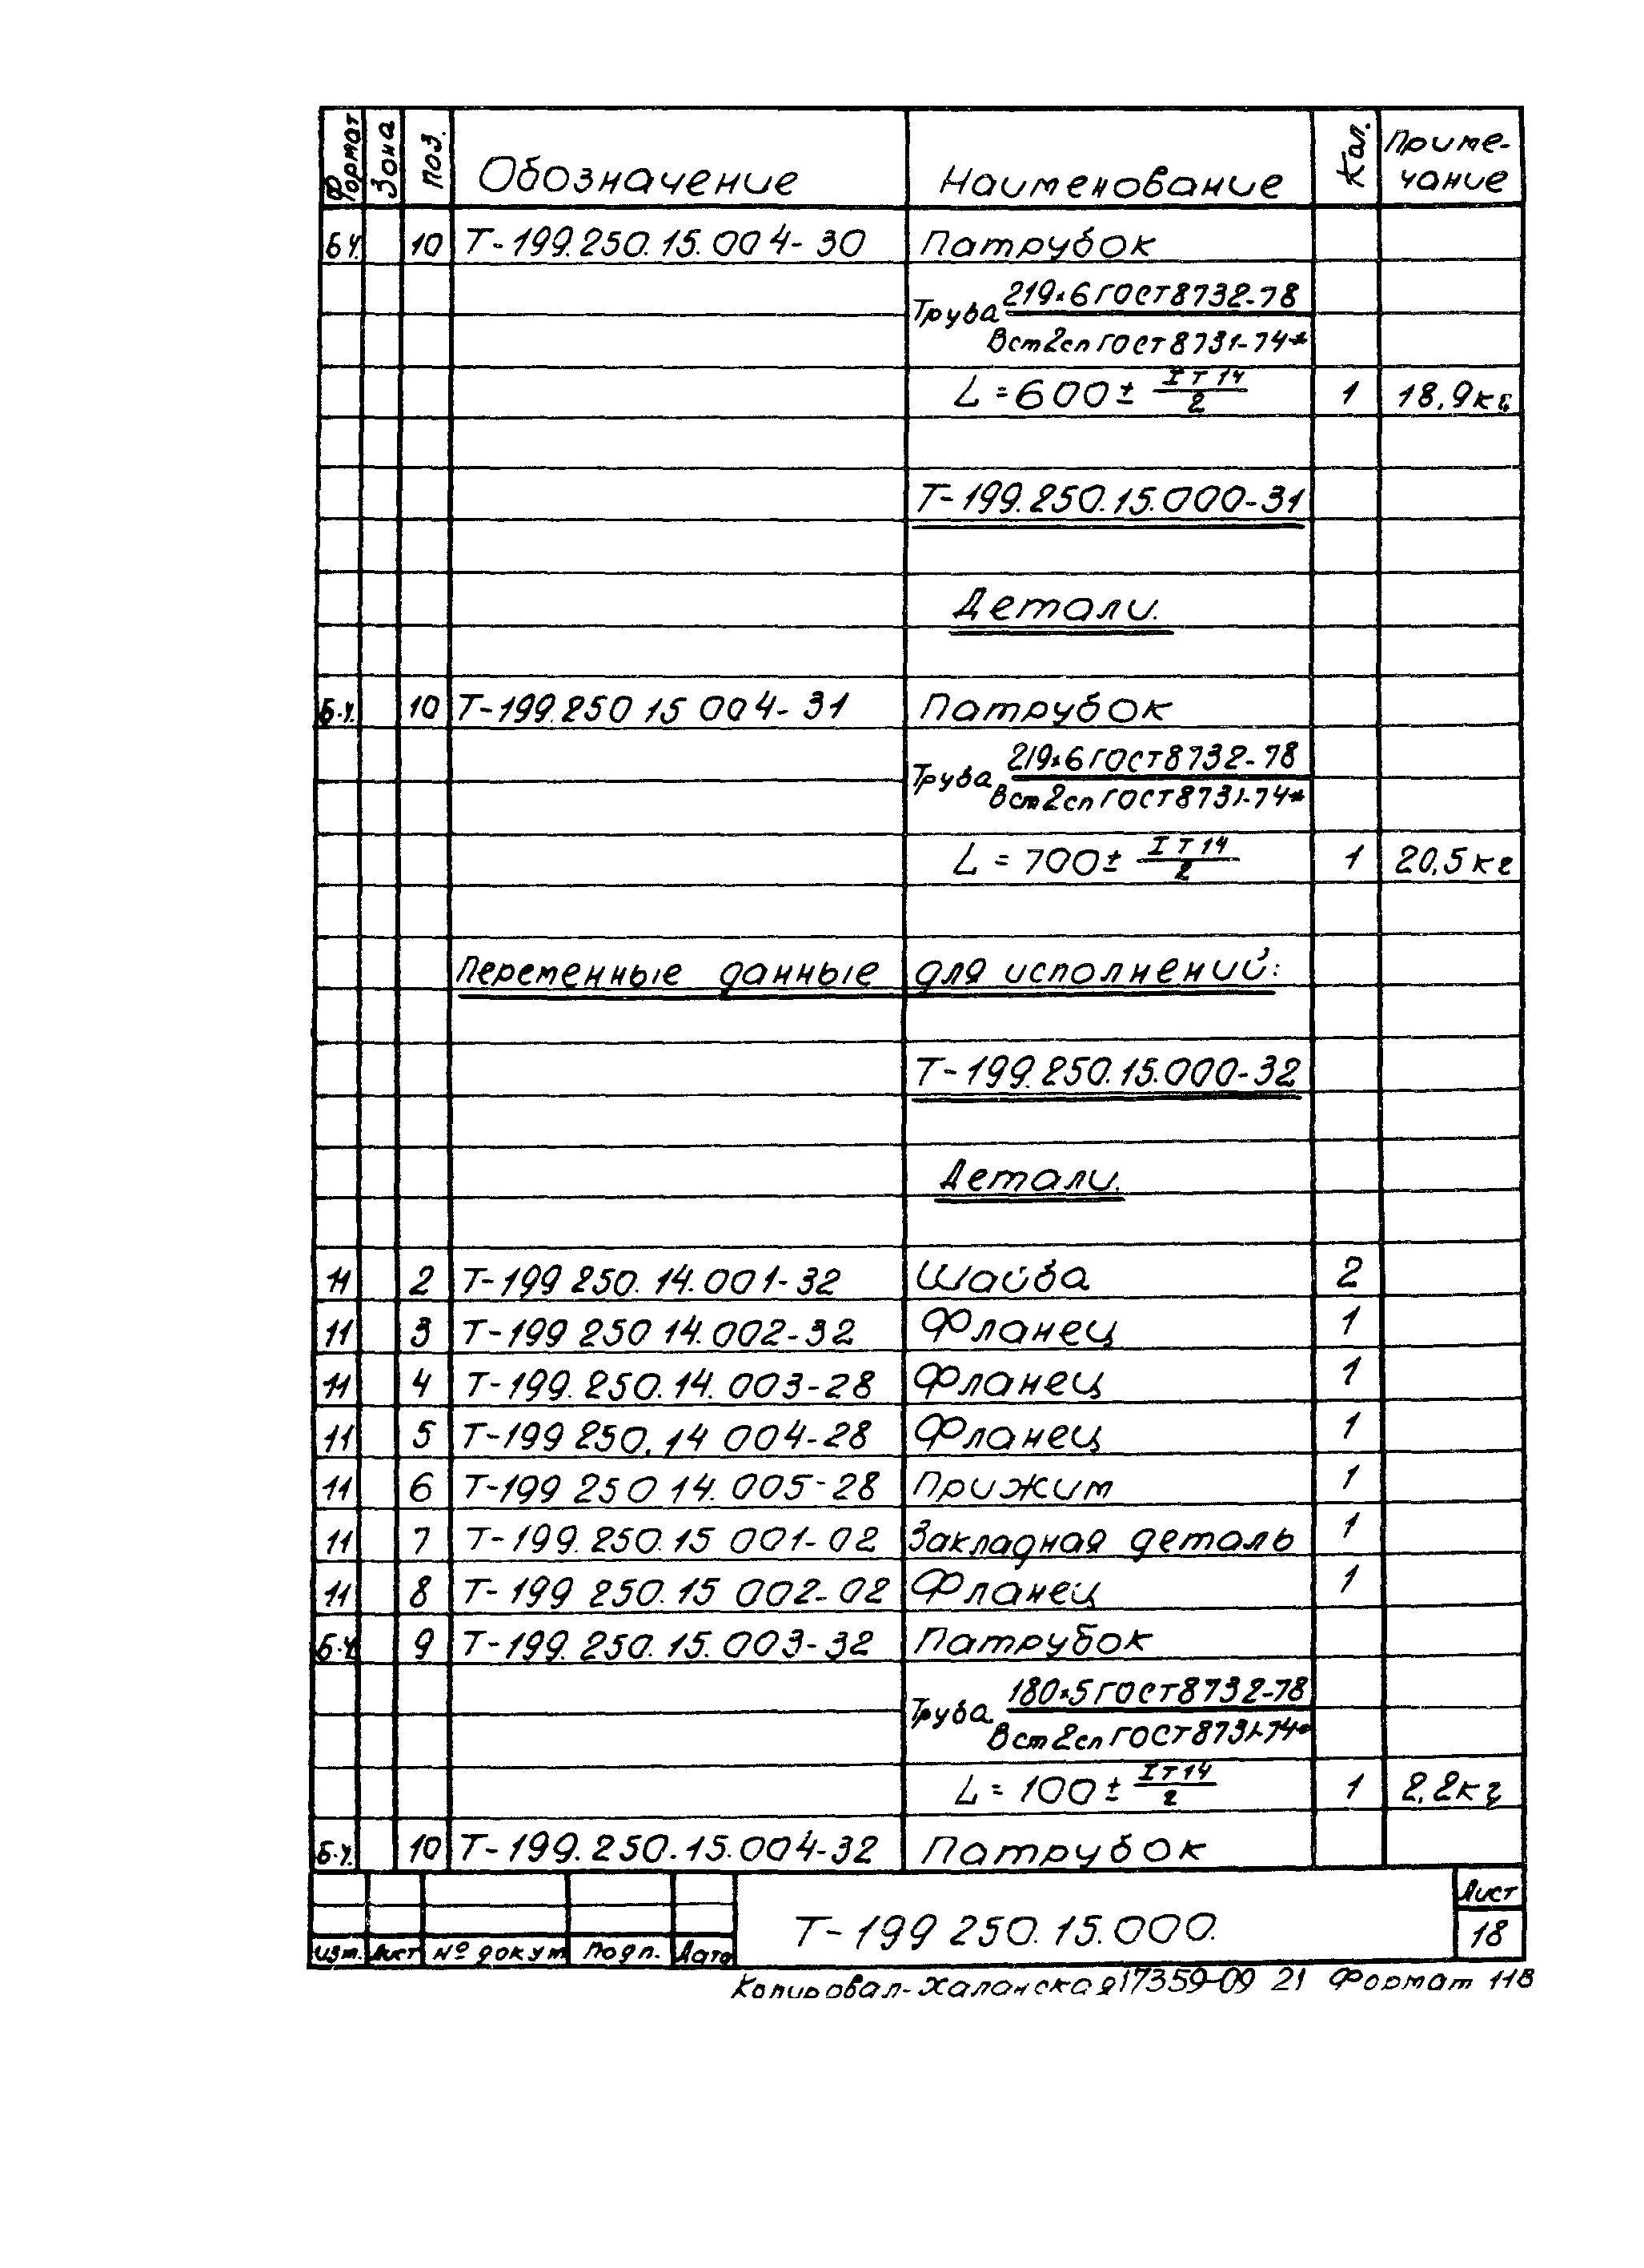 Формат Зона Поз. Обозначение Наименование Кол. Приме-
чание
БЧ. 10 Т-199.250.15.004-30 Патрубок
Труба 219×6 ГОСТ 8732-78
Вст2сп ГОСТ 8731-74*
L = 600 ± IT14/2 1 18,9кг
Т-199.250.15.000-31
Детали.
Б.Ч. 10 Т-199.250 15 004-31 Патрубок
Труба 219×6 ГОСТ 8732-78
Вст2сп ГОСТ 8731-74*
L = 700 ± IT14/2 1 20,5кг
Переменные данные для исполнений:
Т-199.250.15.000-32
Детали.
11 2 Т-199 250.14.001-32 Шайба 2
11 3 Т-199 250 14.002-32 Фланец 1
11 4 Т-199.250.14.003-28 Фланец 1
11 5 Т-199 250.14 004-28 Фланец 1
11 6 Т-199 250 14.005-28 Прижим 1
11 7 Т-199.250.15 001-02 Закладная деталь 1
11 8 Т-199 250.15 002-02 Фланец 1
Б.Ч. 9 Т-199.250.15.003-32 Патрубок
Труба 180×5 ГОСТ 8732-78
Вст2сп ГОСТ 8731-74*
L = 100 ± IT14/2 1 2,2кг
Б.Ч. 10 Т-199.250.15.004-32 Патрубок
Т-199 250.15.000.
Лист
18
Изм. Лист № докум Подп. Дата
Копировал-Халанская 17359-09 21 Формат 11В